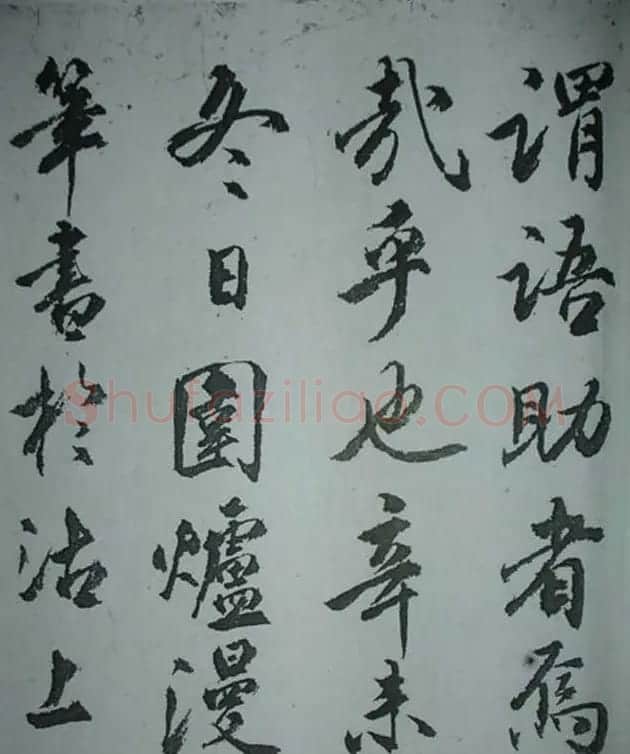 謂語助者焉
哉乎也辛未
冬日圍爐漫
筆書於沽上
Shufaziliao.COM